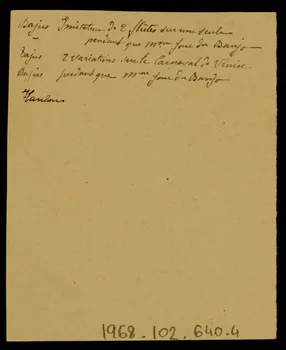 Bajus Imitation de 2 flûtes sur une seule
pendant que mon joue du Banjo
Bajus 2 variations sur le Carnaval de Venise
Bajus pendant que mon joue du Banjo
1968.102.640.4